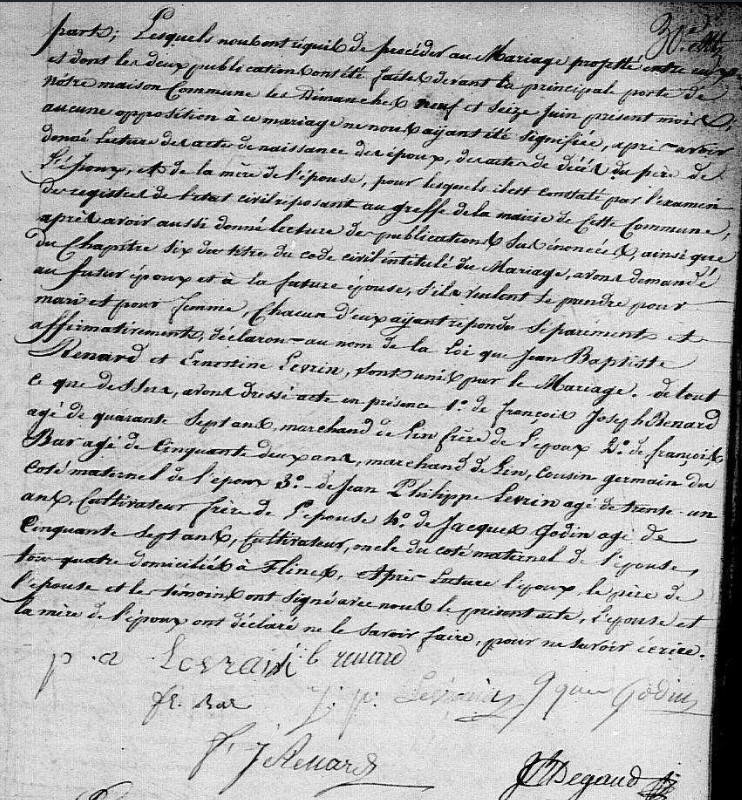 part; Lesquels nous ont réquis de procéder au Mariage projetté entre eux
et dont les deux publications ont été faites devant la principale porte de
nôtre maison Commune les Dimanches neuf et seize Juin présent mois;
aucune opposition à ce mariage ne nous ayant été signifiée, après avoir
donné lecture des acte de naissance des époux, des actes de décès du père de
l'époux, et de la mère de l'épouse, pour lesquels il est constaté par l'examen
des registres de l'état civil réposant au greffe de la mairie de Cette Commune,
après avoir aussi donné lecture des publications sus énoncées, ainsi que
du Chapitre six du titre du code civil intitulé du Mariage, avons demandé
au futur époux et à la future épouse, s'ils veulent se prendre pour
mari et pour femme, Chacun d'eux ayant répondu séparément et
affirmativement, déclarons au nom de la Loi que Jean Baptiste
Renard et Ernestine Levrin, sont unis par le Mariage. de tout
ce que dessus, avons dressé acte en présence 1.° de françois Joseph Renard
agé de quarante sept ans, marchand de Lin frère de l'époux 2.° de françois
Bar agé de Cinquante deux ans, marchand de Lin, Cousin germain du
coté maternel de l'époux 3.° de Jean Philippe Levrin agé de trente-un
ans, Cultivateur frère de l'épouse 4.° de Jacques Godin agé de
Cinquante sept ans, Cultivateur, oncle du coté maternel de l'épouse,
tous quatre domiciliés à Flines, et après lecture l'époux, le père de
l'épouse et les témoins ont signé avec nous le présent acte, l'épouse et
la mère de l'époux ont déclaré ne le savoir faire, pour ne savoir écrire.
p. a Levrain j. b renard
fr. Bar j. p. Levrain Godin
f. J Renard
Degand